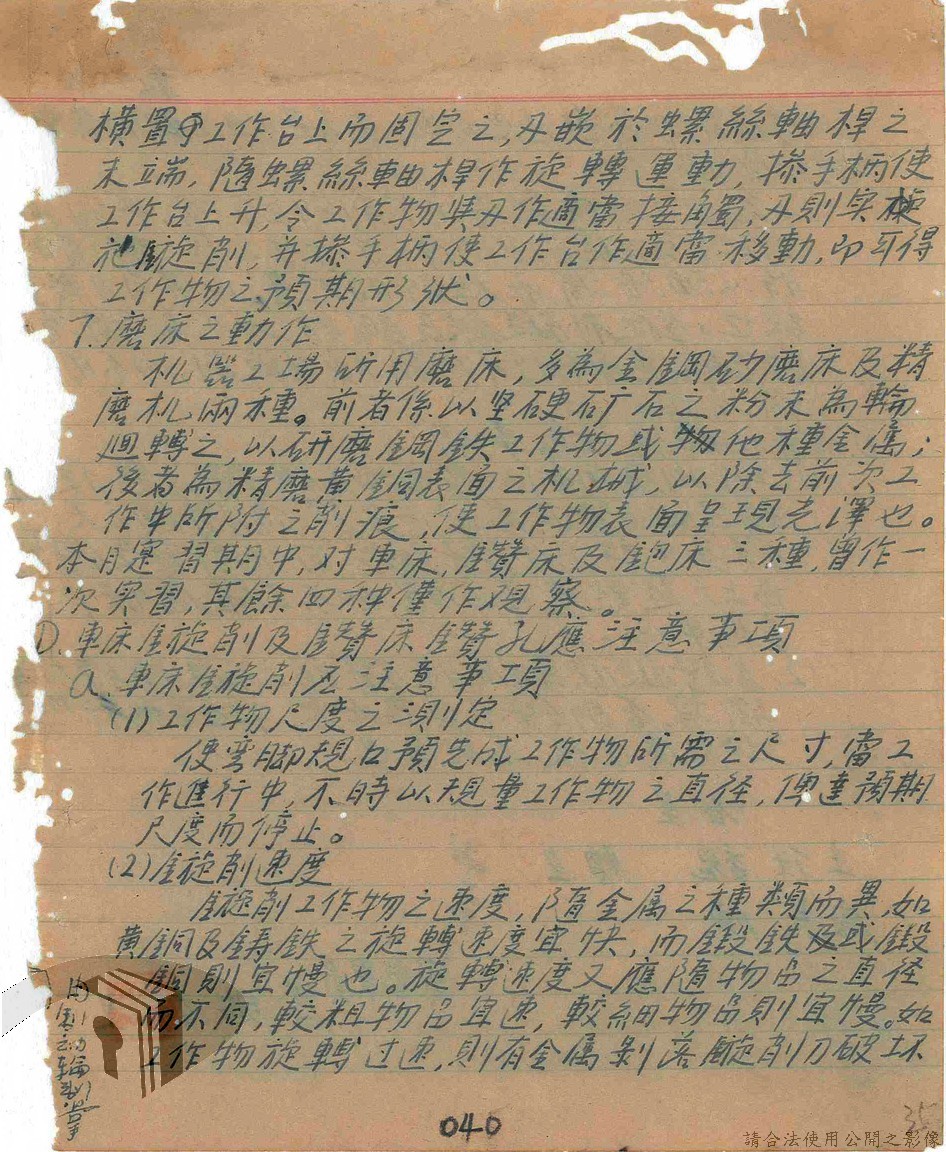 橫置中工作台上而固定之,刃嵌於螺絲軸桿之
末端,隨螺絲軸桿作旋轉運動,搽手柄使
工作台上升,令工作物與刃作適當接觸,刃則與
施鏇削,并搽手柄使工作台作適當移動,即可得
工作物之預期形狀。
7.磨床之動作
机器工場所用磨床,多為金鋼砂磨床及精
磨机兩種。前者係以坚硬矿石之粉末為輪
迴轉之,以研磨鋼鉄工作物或他種金屬;
後者為精磨黃銅表面之机械,以除去前次工
作中所附之削痕,使工作物表面呈現光澤也。
本月寔習期中,对車床,鑽床及鉋床三種,曾作一
次实習,其餘四种僅作观察。
D.車床鏇削及鑽床鑽孔應注意事項
a.車床鏇削应注意事項
(1)工作物尺度之測定
使弯脚規口預先成工作物所需之尺寸,當工
作進行中,不時以規量工作物之直径,俾達預期
尺度而停止。
(2)鏇削速度
鏇削工作物之速度,隨金属之種類而異,如
黃銅及鑄鉄之旋轉速度宜快,而鍛鉄及或鍛
鋼則宜慢也。旋轉速度又應隨物品之直径
而不同,較粗物品宜速,較細物品則宜慢。如
工作物旋轉过速,則有金属剝落鏇削刀破坏
040
35
請合法使用公開之影像